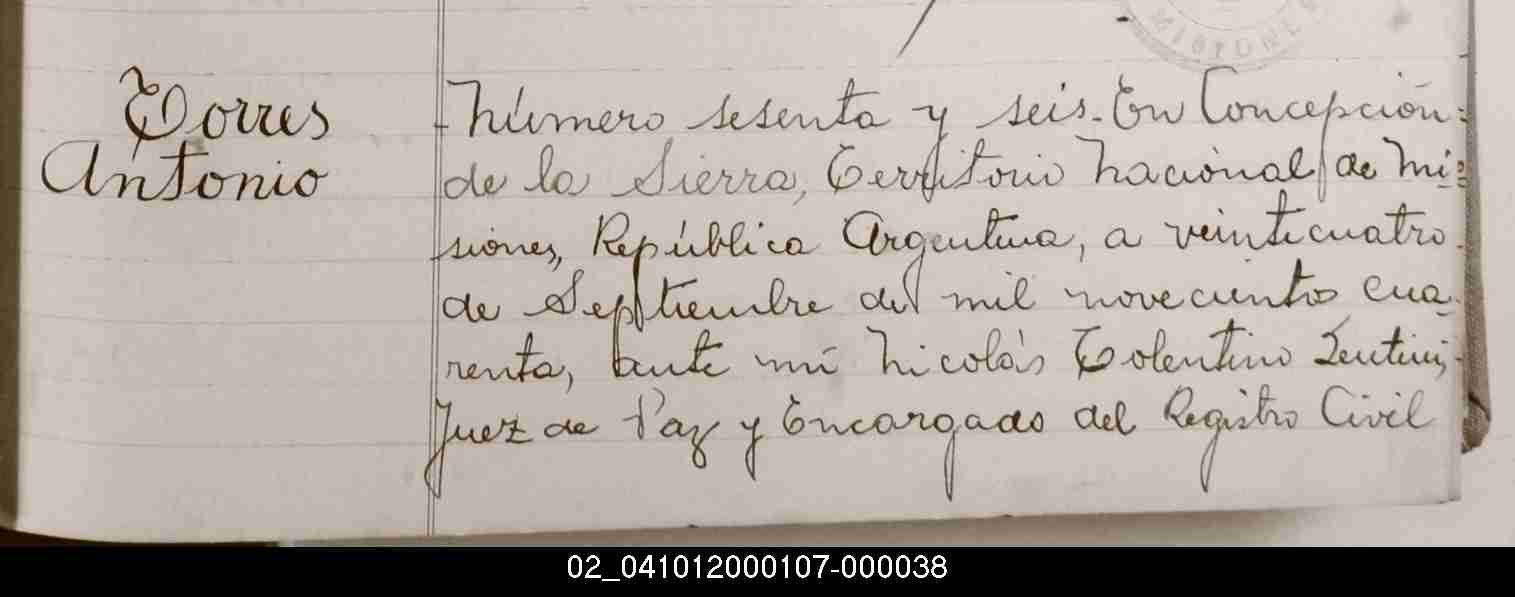 MISIONE
Torres
Antonio
Número sesenta y seis. En Concepción
de la Sierra, Territorio Nacional de Mi=
siones, República Argentina, a veinticuatro
de Septiembre de mil novecientos cua
renta, ante mi Nicolás Tolentino
Juez de Paz y Encargado del Registro Civil
02_041012000107-000038